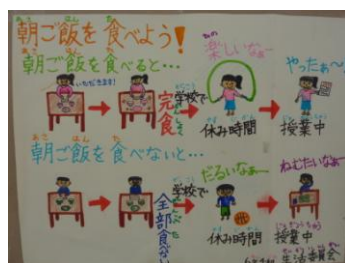 朝ご飯を食べよう！
朝ご飯を食べると…
いただきます！
完食
学校で
楽しいなぁ〜
休み時間
やったぁ〜！
授業中
朝ご飯を食べないと…
全部食べない
学校で
だるいなぁ〜
休み時間
ねむたいなぁ〜
授業中
生活委員会